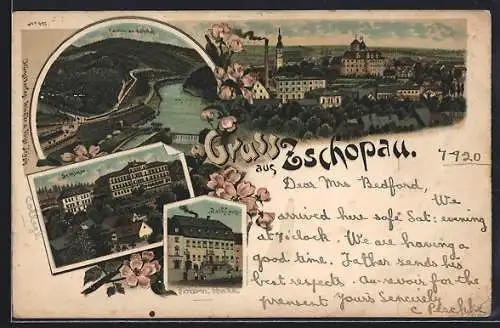 Gruss
aus
Zschopau.
Seminar
Rathhaus
7920
Dear Mrs Bedford,
We
arrived here safe Sat: evening
at 7 o'clock. We are having a
good time. Father sends his
best respects. au-revoir for the
prensent Your's Sencerely
C Peschke